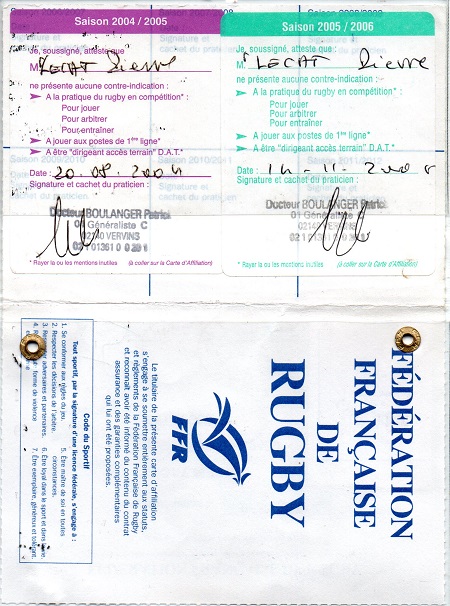 Saison 2004 / 2005
Je, soussigné, atteste que
M. LECAT Pierre
ne présente aucune contre-indication :
➤ A la pratique du rugby en compétition* :
Pour jouer
Pour arbitrer
Pour entraîner
➤ A jouer aux postes de 1ère ligne*
➤ A être "dirigeant accès terrain" D.A.T.*
Date : 20.08.2004
Signature et cachet du praticien :
Docteur BOULANGER Patrick
Généraliste C
02140 VERVINS
* Rayer la ou les mentions inutiles (à coller sur la Carte d'Affiliation)
Saison 2005 / 2006
Je, soussigné, atteste que
M. LECAT Pierre
ne présente aucune contre-indication :
➤ A la pratique du rugby en compétition* :
Pour jouer
Pour arbitrer
Pour entraîner
➤ A jouer aux postes de 1ère ligne*
➤ A être "dirigeant accès terrain" D.A.T.*
Date : 14-11-2005
Signature et cachet du praticien :
Docteur BOULANGER Patrick
01 Généraliste C
02140 VERVINS
* Rayer la ou les mentions inutiles (à coller sur la Carte d'Affiliation)
FÉDÉRATION
FRANÇAISE
DE
RUGBY
FFR
Le titulaire de la présente carte d'affiliation
s'engage à se soumettre entièrement aux statuts,
et règlements de la Fédération Française de Rugby
et reconnaît avoir été informé du contenu du contrat
assurance et des garanties complémentaires
qui lui ont été proposées.
Code du Sportif
Tout sportif, par la signature d'une licence fédérale, s'engage à :
1. Se conformer aux règles du jeu.
2. Respecter les décisions de l'arbitre.
3. Respecter adversaires et partenaires.
4. forme de violence
5. Être maître de soi en toutes
circonstances.
6. Être loyal dans le sport et dans la vie.
7. Être exemplaire, généreux et tolérant.